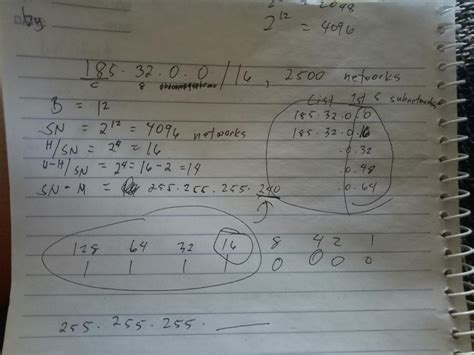 by
2¹² = 4096
185.32.0.0/16, 2500 networks
B = 12
SN = 2¹² = 4096 networks
H/SN = 2⁴ = 16
U-H/SN = 2⁴ = 16-2 = 14
SN-M = 255.255.255.240
List 1st 5 subnetworks
185.32.0.0
185.32.0.16
.0.32
.0.48
.0.64
128 64 32 16 8 4 2 1
1 1 1 1 0 0 0 0
255.255.255.